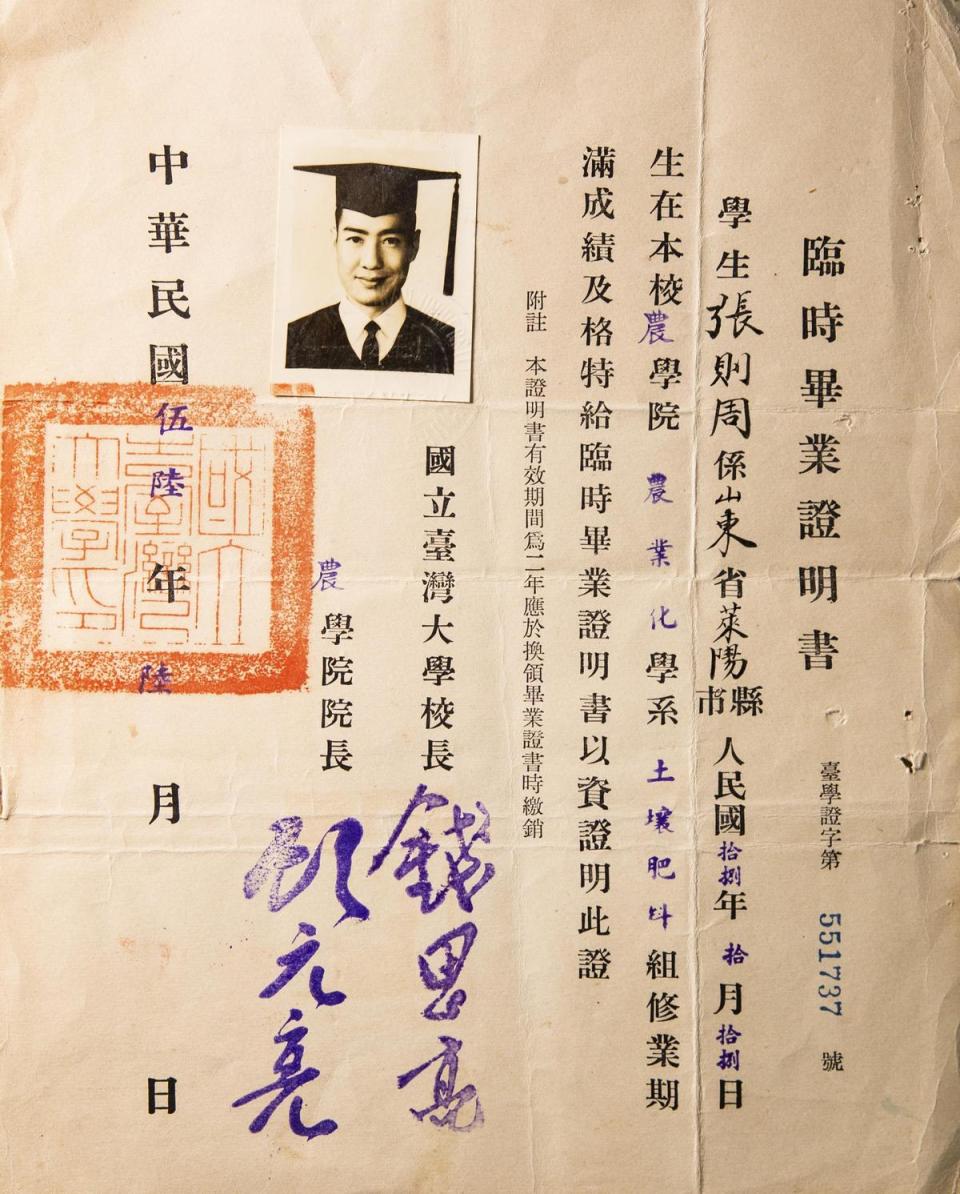 臨時畢業證明書
臺學證字第 551737 號
學生張則周係山東省萊陽縣市人民國拾捌年拾月拾捌日
生在本校農學院農業化學系土壤肥料組修業期
滿成績及格特給臨時畢業證明書以資證明此證
附註 本證明書有效期間為二年應於換領畢業證書時繳銷
國立臺灣大學校長 錢思亮
農學院院長 顧元亮
中華民國伍陸年陸月 日
國立臺灣大學印